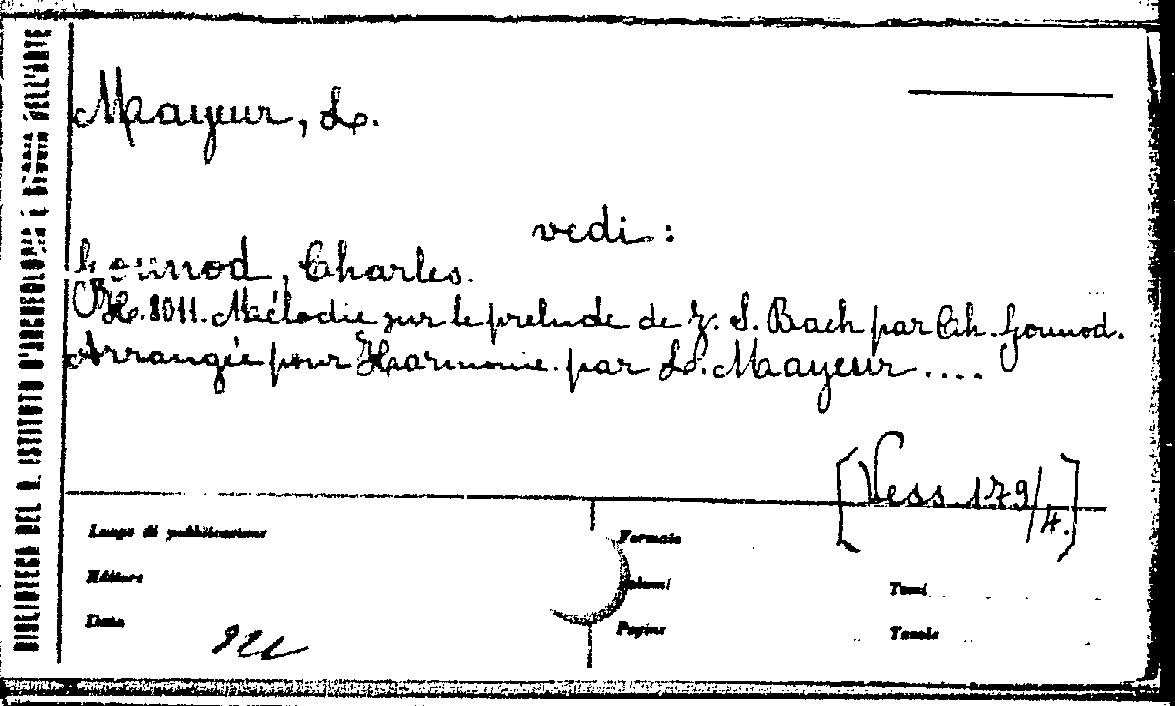 BIBLIOTECA DEL R. ISTITUTO D'ARCHEOLOGIA E STORIA DELL'ARTE
Mayeur, L.
vedi:
Gounod, Charles.
H. 8011. Mélodie sur le prelude de J. S. Bach par Ch. Gounod.
Arrangée pour Harmonie par L. Mayeur ....
[Vess 179/4.]
Luogo di pubblicazione
Formato
Editore
Volumi
Tomi
Data
Pagine
Tavole